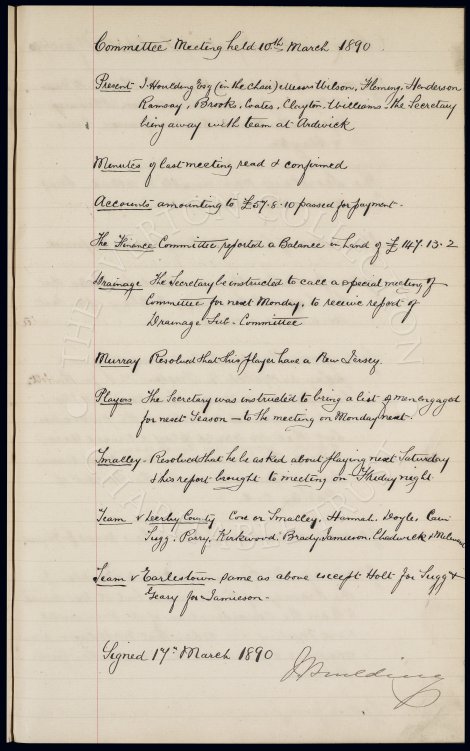 Committee Meeting held 10th March 1890
Present J. Houlding Esq (in the chair) Messrs Wilson, Fleming, Henderson
Ramsay, Brooks, Coates, Clayton, Williams - the Secretary
being away with team at Ardwick
Minutes of last meeting read & confirmed
Accounts amounting to £57.8.10 passed for payment.
The Finance Committee reported a Balance in hand of £147.13.2
Drainage The Secretary be instructed to call a special meeting of
Committee for next Monday, to receive report of
Drainage Sub-Committee
Murray Resolved that this player have a New Jersey
Players The Secretary was instructed to bring a list of men engaged
for next Season - to the meeting on Monday next.
Smalley - Resolved that he be asked about playing next Saturday
& his report brought to meeting on Friday night
Team v Derby County Cox or Smalley, Hannah, Doyle, Cain
Sugg, Parry, Kirkwood, Brady, Jamieson, Chadwick & Milward
Team v Earlestown same as above except Holt for Sugg &
Geary for Jamieson -
Signed 17th March 1890
J Houlding